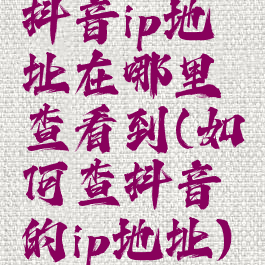 抖音ip地
址在哪里
查看到(如
何查抖音
的ip地址)